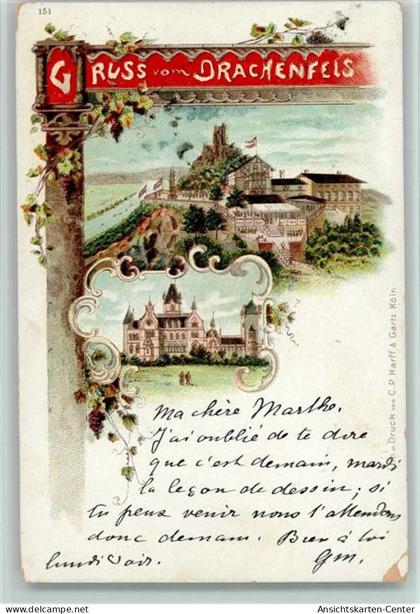 151
GRUSS vom DRACHENFELS
Druck von C. P. Harff & Gartz, Köln
Ma chère Marthe.
J'ai oublié de te dire
que c'est demain, mardi
la leçon de dessin; si
tu peux venir nous t'attendons
donc demain. Bien à toi
lundi soir. Gm.
www.delcampe.net
Ansichtskarten-Center